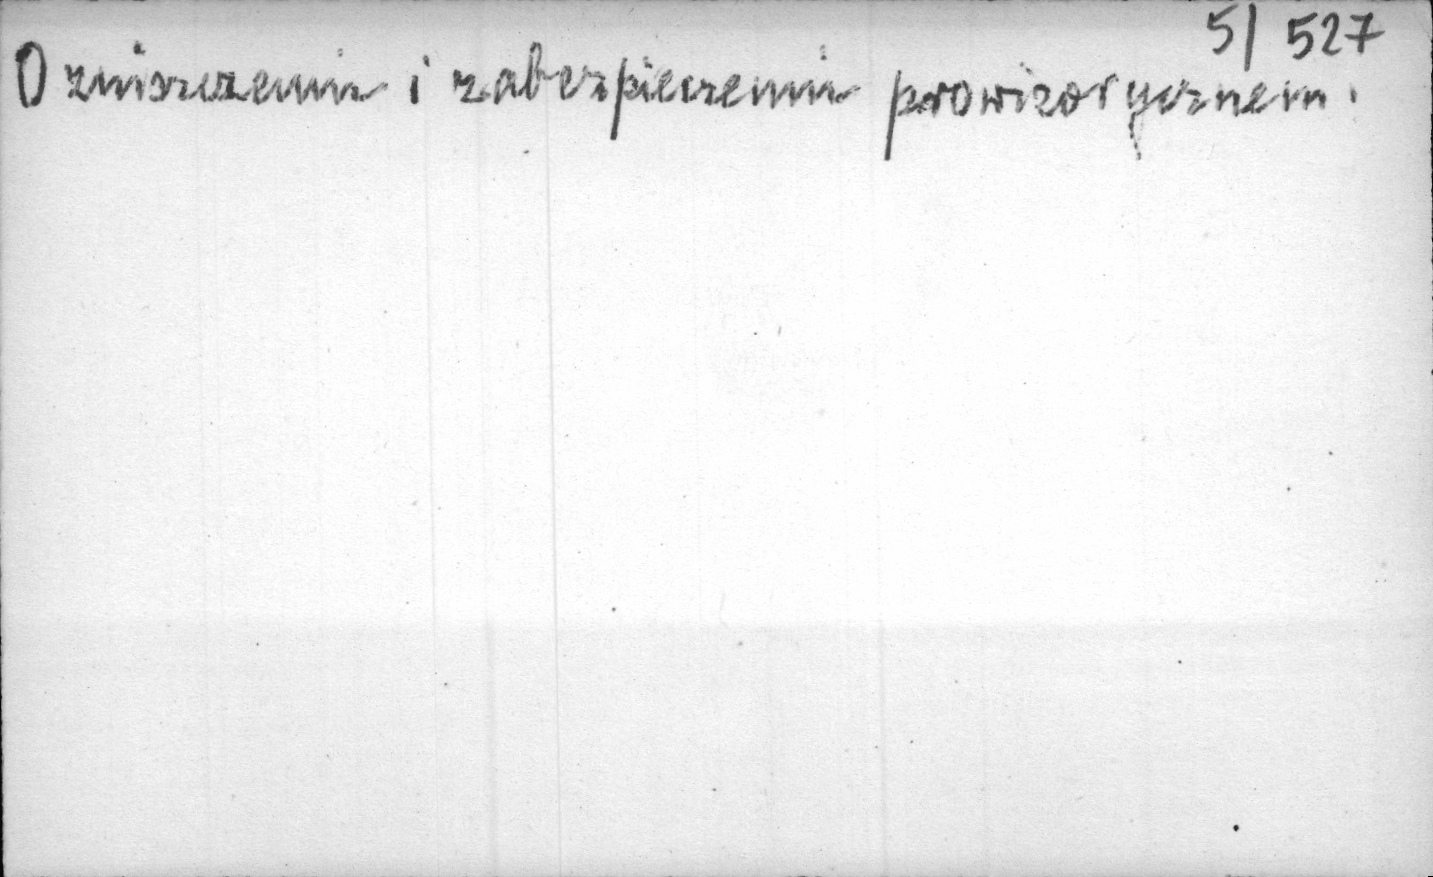 5/ 527
O zniszczeniu i zabezpieczeniu prowizorycznem.